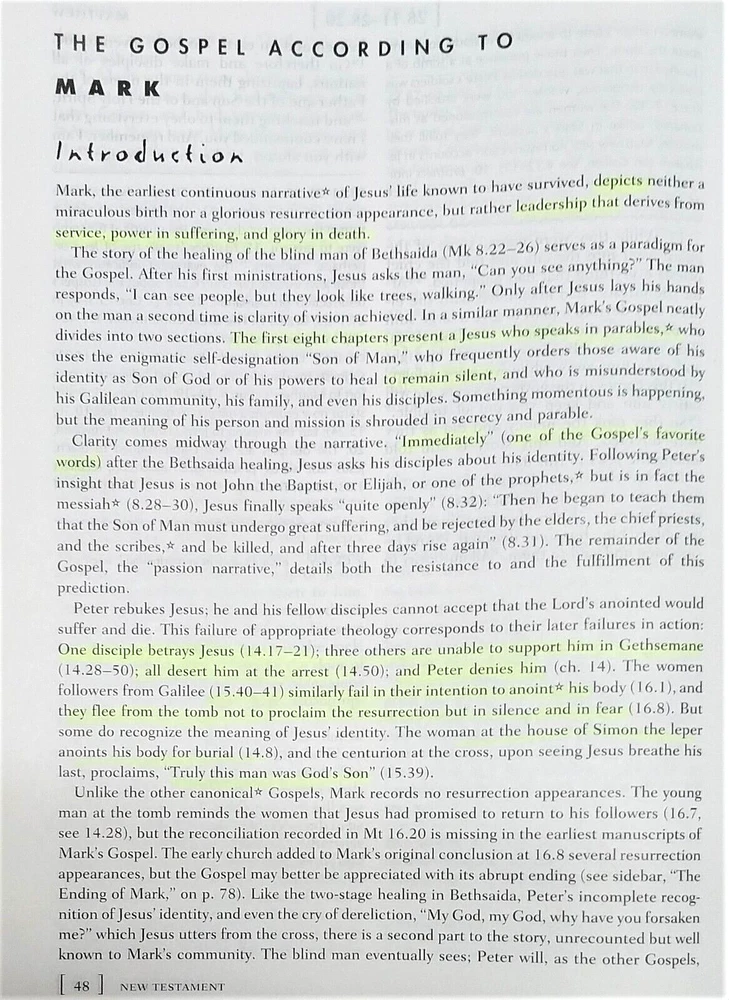 THE GOSPEL ACCORDING TO
MARK
Introduction
Mark, the earliest continuous narrative* of Jesus' life known to have survived, depicts neither a
miraculous birth nor a glorious resurrection appearance, but rather leadership that derives from
service, power in suffering, and glory in death.
The story of the healing of the blind man of Bethsaida (Mk 8.22–26) serves as a paradigm for
the Gospel. After his first ministrations, Jesus asks the man, “Can you see anything?” The man
responds, “I can see people, but they look like trees, walking.” Only after Jesus lays his hands
on the man a second time is clarity of vision achieved. In a similar manner, Mark's Gospel neatly
divides into two sections. The first eight chapters present a Jesus who speaks in parables,* who
uses the enigmatic self-designation “Son of Man,” who frequently orders those aware of his
identity as Son of God or of his powers to heal to remain silent, and who is misunderstood by
his Galilean community, his family, and even his disciples. Something momentous is happening,
but the meaning of his person and mission is shrouded in secrecy and parable.
Clarity comes midway through the narrative. “Immediately” (one of the Gospel's favorite
words) after the Bethsaida healing, Jesus asks his disciples about his identity. Following Peter's
insight that Jesus is not John the Baptist, or Elijah, or one of the prophets,* but is in fact the
messiah* (8.28–30), Jesus finally speaks “quite openly” (8.32): “Then he began to teach them
that the Son of Man must undergo great suffering, and be rejected by the elders, the chief priests,
and the scribes,* and be killed, and after three days rise again” (8.31). The remainder of the
Gospel, the “passion narrative,” details both the resistance to and the fulfillment of this
prediction.
Peter rebukes Jesus; he and his fellow disciples cannot accept that the Lord's anointed would
suffer and die. This failure of appropriate theology corresponds to their later failures in action:
One disciple betrays Jesus (14.17–21); three others are unable to support him in Gethsemane
(14.28–50); all desert him at the arrest (14.50); and Peter denies him (ch. 14). The women
followers from Galilee (15.40–41) similarly fail in their intention to anoint* his body (16.1), and
they flee from the tomb not to proclaim the resurrection but in silence and in fear (16.8). But
some do recognize the meaning of Jesus' identity. The woman at the house of Simon the leper
anoints his body for burial (14.8), and the centurion at the cross, upon seeing Jesus breathe his
last, proclaims, “Truly this man was God's Son” (15.39).
Unlike the other canonical* Gospels, Mark records no resurrection appearances. The young
man at the tomb reminds the women that Jesus had promised to return to his followers (16.7,
see 14.28), but the reconciliation recorded in Mt 16.20 is missing in the earliest manuscripts of
Mark's Gospel. The early church added to Mark's original conclusion at 16.8 several resurrection
appearances, but the Gospel may better be appreciated with its abrupt ending (see sidebar, “The
Ending of Mark,” on p. 78). Like the two-stage healing in Bethsaida, Peter's incomplete recog-
nition of Jesus' identity, and even the cry of dereliction, “My God, my God, why have you forsaken
me?” which Jesus utters from the cross, there is a second part to the story, unrecounted but well
known to Mark's community. The blind man eventually sees; Peter will, as the other Gospels,
[ 48 ] NEW TESTAMENT